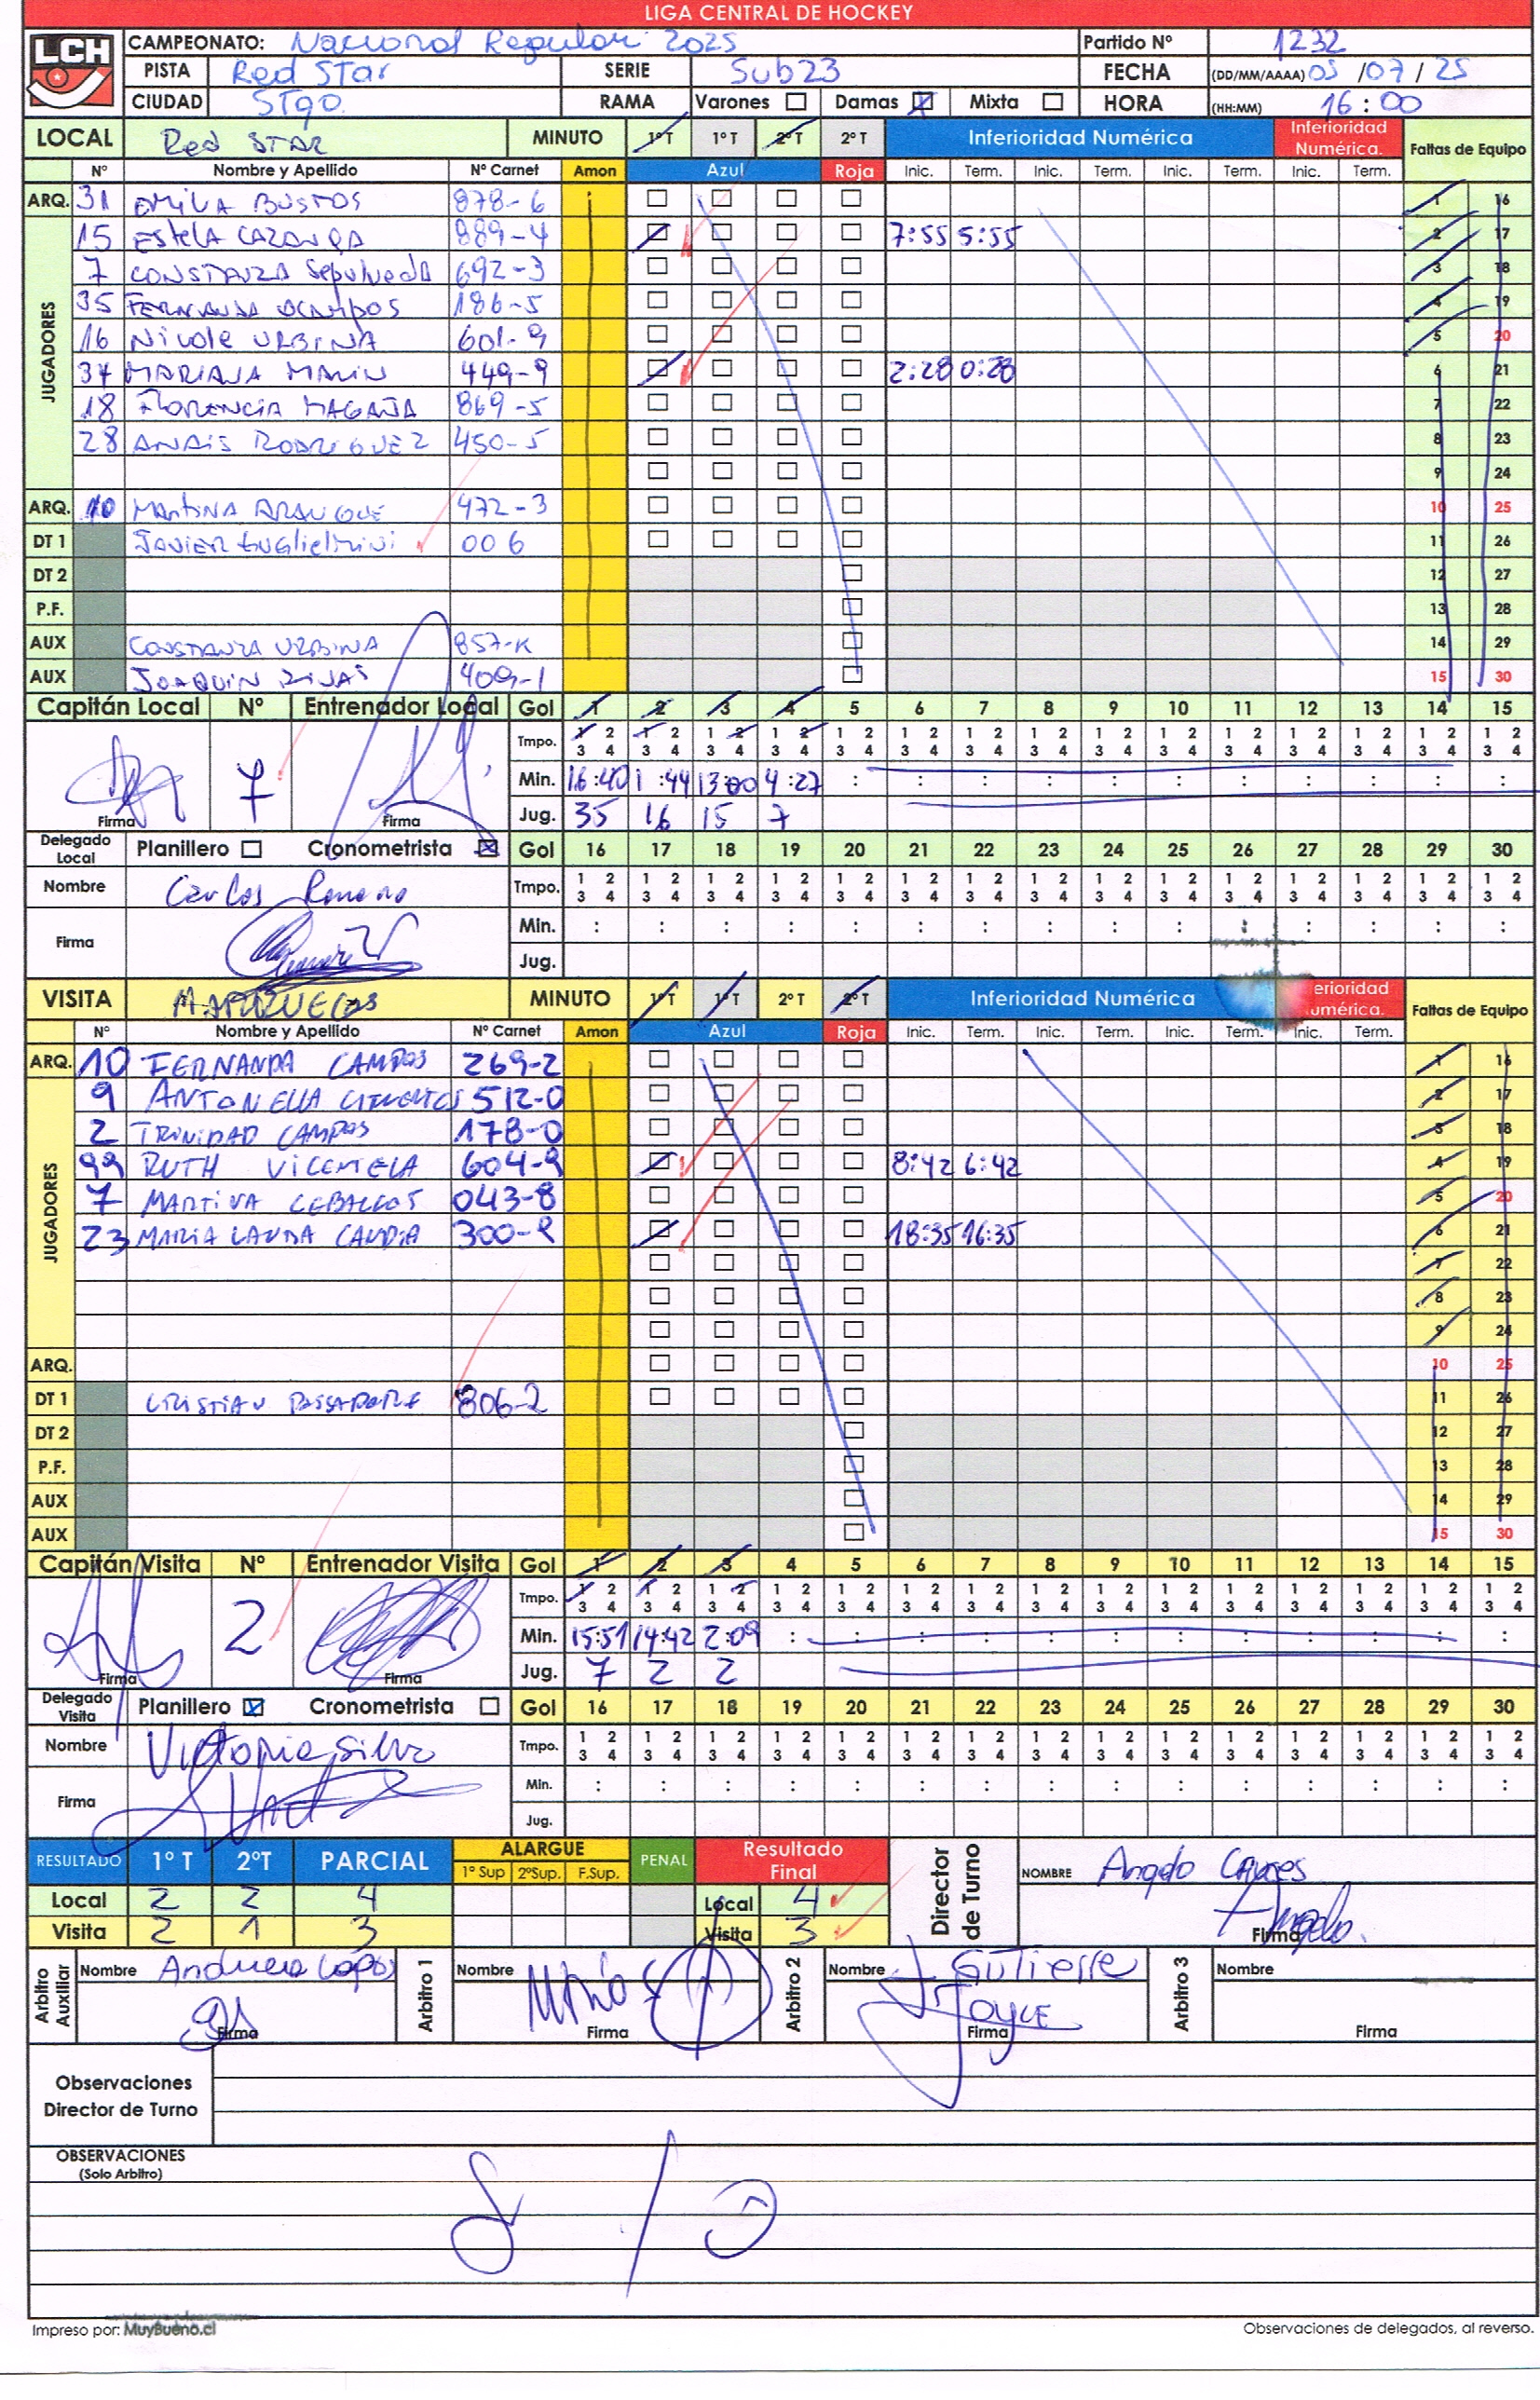 LIGA CENTRAL DE HOCKEY
LCH
CAMPEONATO: Nacional Regular 2025 Partido Nº 1232
PISTA Red STar SERIE Sub23 FECHA (DD/MM/AAAA) 05 /07 / 25
CIUDAD STgo. RAMA Varones Damas Mixta HORA (HH:MM) 16 : 00
LOCAL Red STAR MINUTO 1º T 1º T 2º T 2º T Inferioridad Numérica Inferioridad Numérica. Faltas de Equipo
Nº Nombre y Apellido Nº Carnet Amon Azul Roja Inic. Term. Inic. Term. Inic. Term. Inic. Term.
ARQ. 31 EMILIA BUSTOS 878-6 1 16
JUGADORES
15 Estela CAZANGA 889-4 7:55 5:55 2 17
7 CONSTANZA Sepulveda 692-3 3 18
35 FERNANDA OCAMPOS 186-5 4 19
16 Nicole URBINA 601-9 5 20
34 MARIANA MARIN 449-9 2:28 0:28 6 21
18 FLORENCIA MAGAÑA 869-5 7 22
28 ANAIS RODRIGUEZ 450-5 8 23
9 24
ARQ. 10 MARTINA ARANGUE 472-3 10 25
DT 1 JAVIER GUGLIELMINI 006 11 26
DT 2 12 27
P.F. 13 28
AUX CONSTANZA URBINA 857-K 14 29
AUX JOAQUIN RIVAS 409-1 15 30
Capitán Local Nº Entrenador Local Gol 1 2 3 4 5 6 7 8 9 10 11 12 13 14 15
Tmpo. 1 2 3 4 1 2 3 4 1 2 3 4 1 2 3 4 1 2 3 4 1 2 3 4 1 2 3 4 1 2 3 4 1 2 3 4 1 2 3 4 1 2 3 4 1 2 3 4 1 2 3 4 1 2 3 4 1 2 3 4
7 Min. 16:40 1:44 13:00 4:27 : : : : : : : : : : :
Firma Firma Jug. 35 16 15 7
Delegado Local Planillero Cronometrista Gol 16 17 18 19 20 21 22 23 24 25 26 27 28 29 30
Nombre Carlos Romero Tmpo. 1 2 3 4 1 2 3 4 1 2 3 4 1 2 3 4 1 2 3 4 1 2 3 4 1 2 3 4 1 2 3 4 1 2 3 4 1 2 3 4 1 2 3 4 1 2 3 4 1 2 3 4 1 2 3 4 1 2 3 4
Firma Min. : : : : : : : : : : : : : : :
Jug.
VISITA MAPUZUELOS MINUTO 1º T 1º T 2º T 2º T Inferioridad Numérica erioridad umérica. Faltas de Equipo
Nº Nombre y Apellido Nº Carnet Amon Azul Roja Inic. Term. Inic. Term. Inic. Term. Inic. Term.
ARQ. 10 FERNANDA CAMPOS 269-2 1 16
JUGADORES
9 ANTONELLA CIFUENTES 512-0 2 17
2 TRINIDAD CAMPOS 178-0 3 18
99 RUTH VICENTELA 604-9 8:42 6:42 4 19
7 MARTINA CEBALLOS 043-8 5 20
23 MARIA LAURA CANDIA 300-2 18:35 16:35 6 21
7 22
8 23
9 24
ARQ. 10 25
DT 1 CRISTIAN PASSADORE 806-2 11 26
DT 2 12 27
P.F. 13 28
AUX 14 29
AUX 15 30
Capitán Visita Nº Entrenador Visita Gol 1 2 3 4 5 6 7 8 9 10 11 12 13 14 15
Tmpo. 1 2 3 4 1 2 3 4 1 2 3 4 1 2 3 4 1 2 3 4 1 2 3 4 1 2 3 4 1 2 3 4 1 2 3 4 1 2 3 4 1 2 3 4 1 2 3 4 1 2 3 4 1 2 3 4 1 2 3 4
2 Min. 15:51 14:42 2:09 : : : : : : : : : : : :
Firma Firma Jug. 7 2 2
Delegado Visita Planillero Cronometrista Gol 16 17 18 19 20 21 22 23 24 25 26 27 28 29 30
Nombre Victoria Silva Tmpo. 1 2 3 4 1 2 3 4 1 2 3 4 1 2 3 4 1 2 3 4 1 2 3 4 1 2 3 4 1 2 3 4 1 2 3 4 1 2 3 4 1 2 3 4 1 2 3 4 1 2 3 4 1 2 3 4 1 2 3 4
Firma Min. : : : : : : : : : : : : : : :
Jug.
RESULTADO 1º T 2ºT PARCIAL ALARGUE 1º Sup 2ºSup. F.Sup. PENAL Resultado Final Director de Turno NOMBRE Angelo
Local 2 2 4 Local 4
Visita 2 1 3 Visita 3 Firma
Arbitro Auxiliar Nombre Andrea Lopez Firma Arbitro 1 Nombre Firma Arbitro 2 Nombre J GUTIERRE JOYCE Firma Arbitro 3 Nombre Firma
Observaciones Director de Turno
OBSERVACIONES (Solo Arbitro)
S / O
Impreso por: MuyBueno.cl Observaciones de delegados, al reverso.